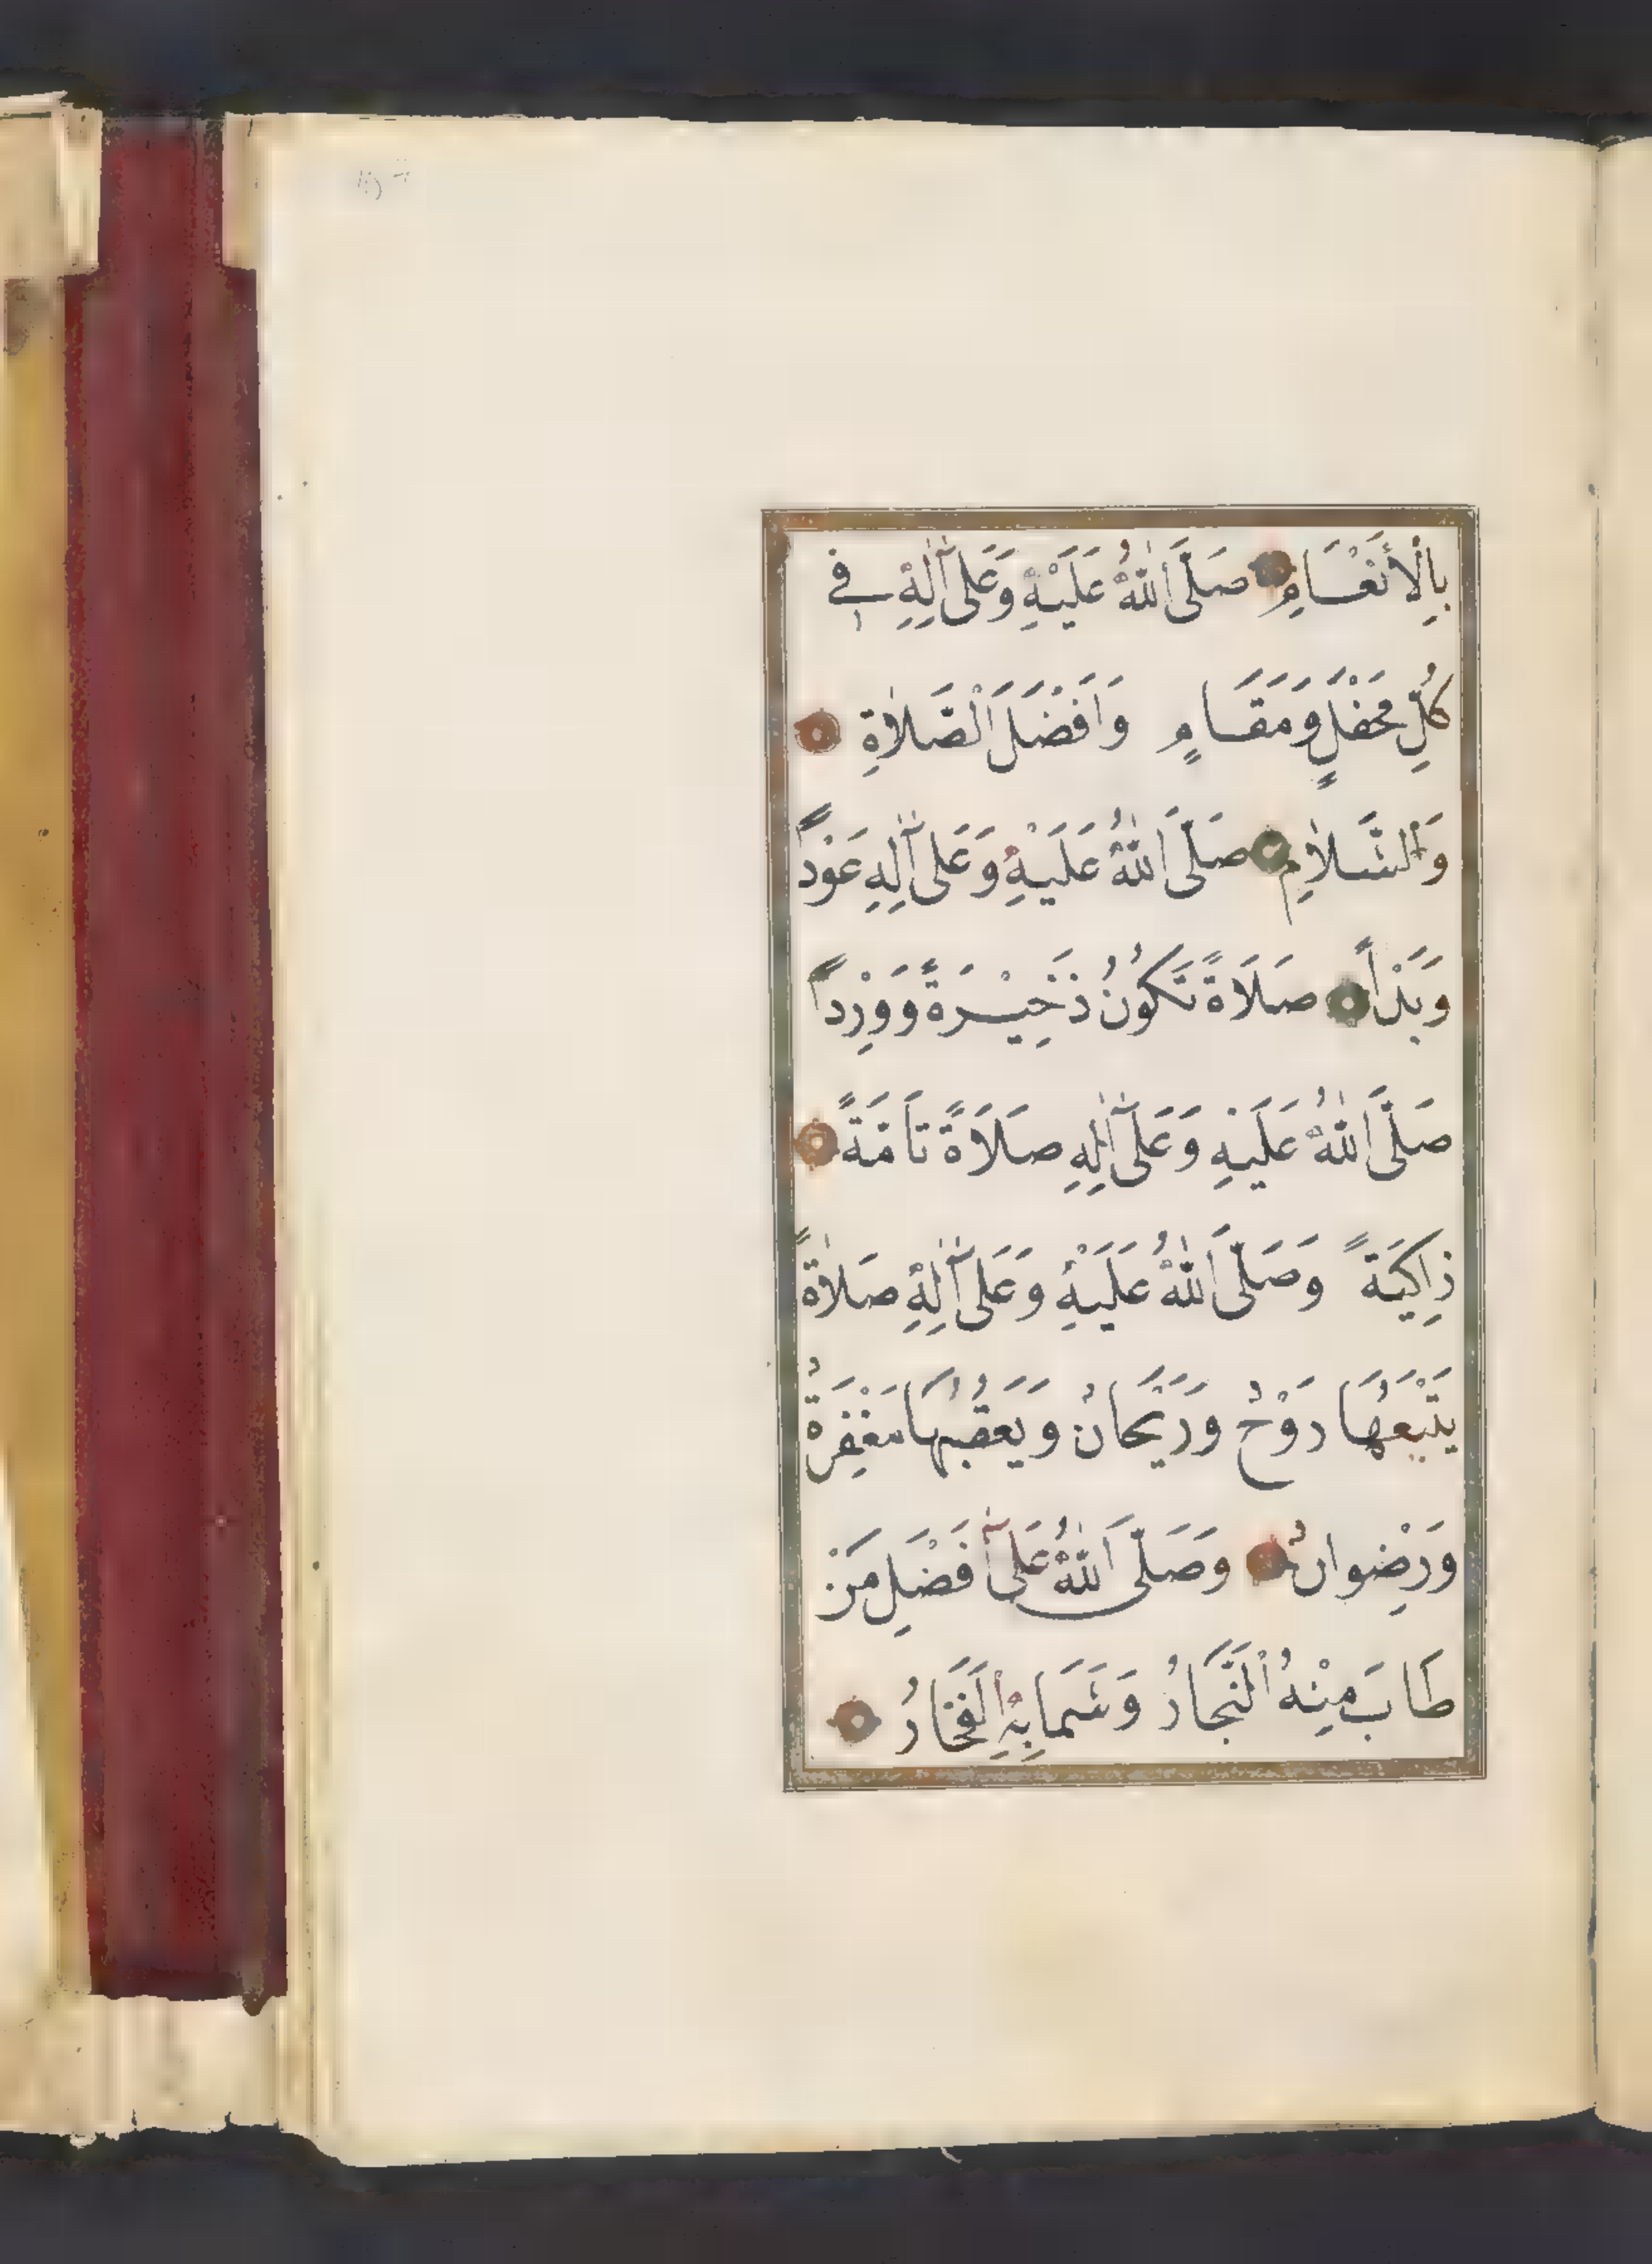 بِالْأَنْعَامِ صَلَّى اللّٰهُ عَلَيْهِ وَعَلٰى اٰلِهِ فِي
كُلِّ مَحْفَلٍ وَمَقَامٍ وَاَفْضَلَ الصَّلٰوةِ
وَالسَّلَامِ صَلَّى اللّٰهُ عَلَيْهِ وَعَلٰى اٰلِهِ عَوْدًا
وَبَدْأً صَلَاةً تَكُوْنُ ذَخِيْرَةً وَوِرْدًا
صَلَّى اللّٰهُ عَلَيْهِ وَعَلٰى اٰلِهِ صَلَاةً تَامَّةً
زَاكِيَةً وَصَلَّى اللّٰهُ عَلَيْهِ وَعَلٰى اٰلِهِ صَلَاةً
يَتْبَعُهَا رَوْحٌ وَرَيْحَانٌ وَيَعْقُبُهَا مَغْفِرَةٌ
وَرِضْوَانٌ وَصَلَّى اللّٰهُ عَلٰى اَفْضَلِ مَنْ
طَابَ مِنْهُ النِّجَارُ وَسَمَا بِهِ الْفَخَارُ